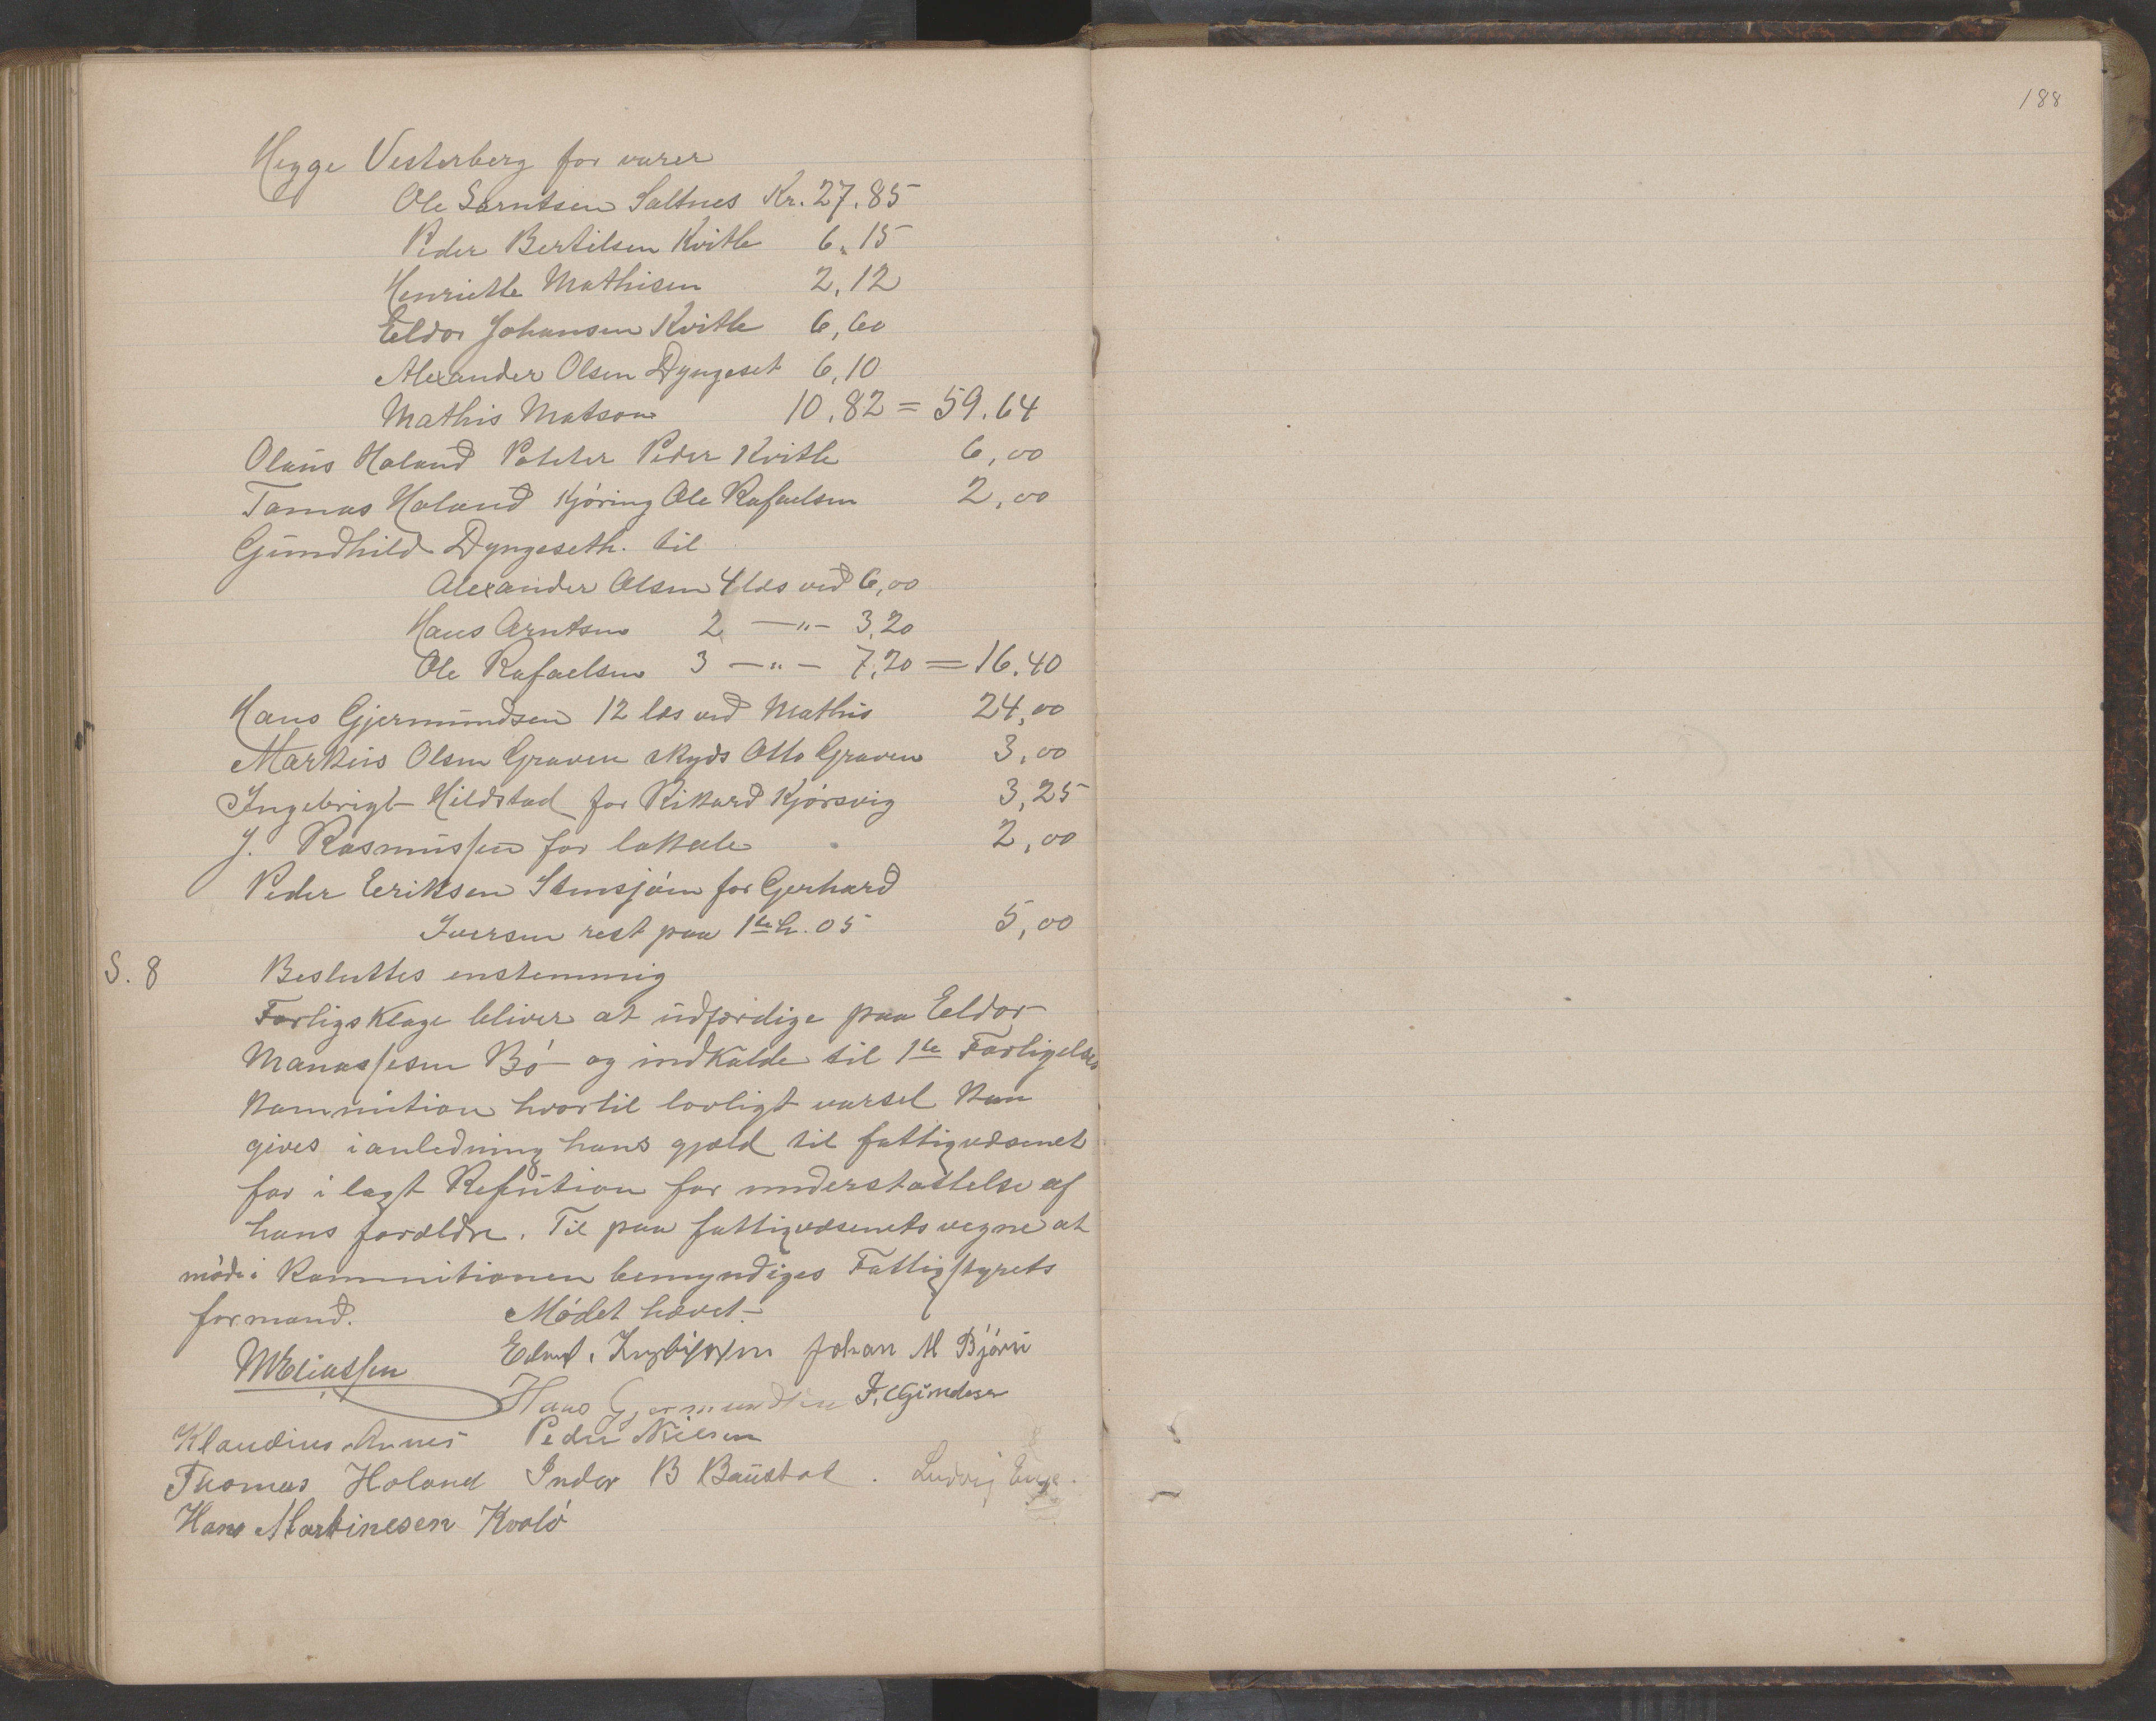 188
Hegge Vesterberg for varer
Ole Larntsen Saltnes Kr. 27.85
Peder Bertilsen Kvitle 6,15
Henriette Mathisen 2,12
Eldor Johansen Kvitle 6,60
Alexander Olsen Dyngeset 6,10
Mathis Matson 10.82 = 59.64
Olaus Holand Poteter Peder Kvitle 6,00
Tomas Holand Kjöring Ole Rafaelsen 2,00
Gundhild Dyngeseth. til
Alexander Olsen 4 læs ved 6,00
Hans Arntsen 2 —"— 3,20
Ole Rafaelsen 3 —"— 7,20 = 16.40
Hans Gjermundsen 12 læs ved Mathis 24,00
Markus Olsen Graven skyds Otto Graven 3,00
Ingebrigt Hildstad for Rikard Kjörsvig 3,25
J. Rasmussen for lokale 2,00
Peder Eriksen Stensjöen for Gerhard
Iversen rest paa 1ste h. 05 5,00
S. 8 Besluttes enstemmig
Forligsklage bliver at udfærdige paa Eldor
Manassesen Bö og indkalde til 1te Forligelses
kommition hvortil lovligt varsel kan
gives i anledning hans gjæld til fattigvæsenet
for i lagt Refution for understøttelse af
hans forældre. Til paa fattigvæsenets vegne at
möde i Kommitionen bemyndiges Fattigstyrets
formand. Mödet hævet.
M Eliassen Johan M Björn
Hans Gjermundsen F. Gundesen
Klaudius Peder Nielsen
Thomas Holand Indor B Baustad. Ludvig
Hans Martinesen Kvalö